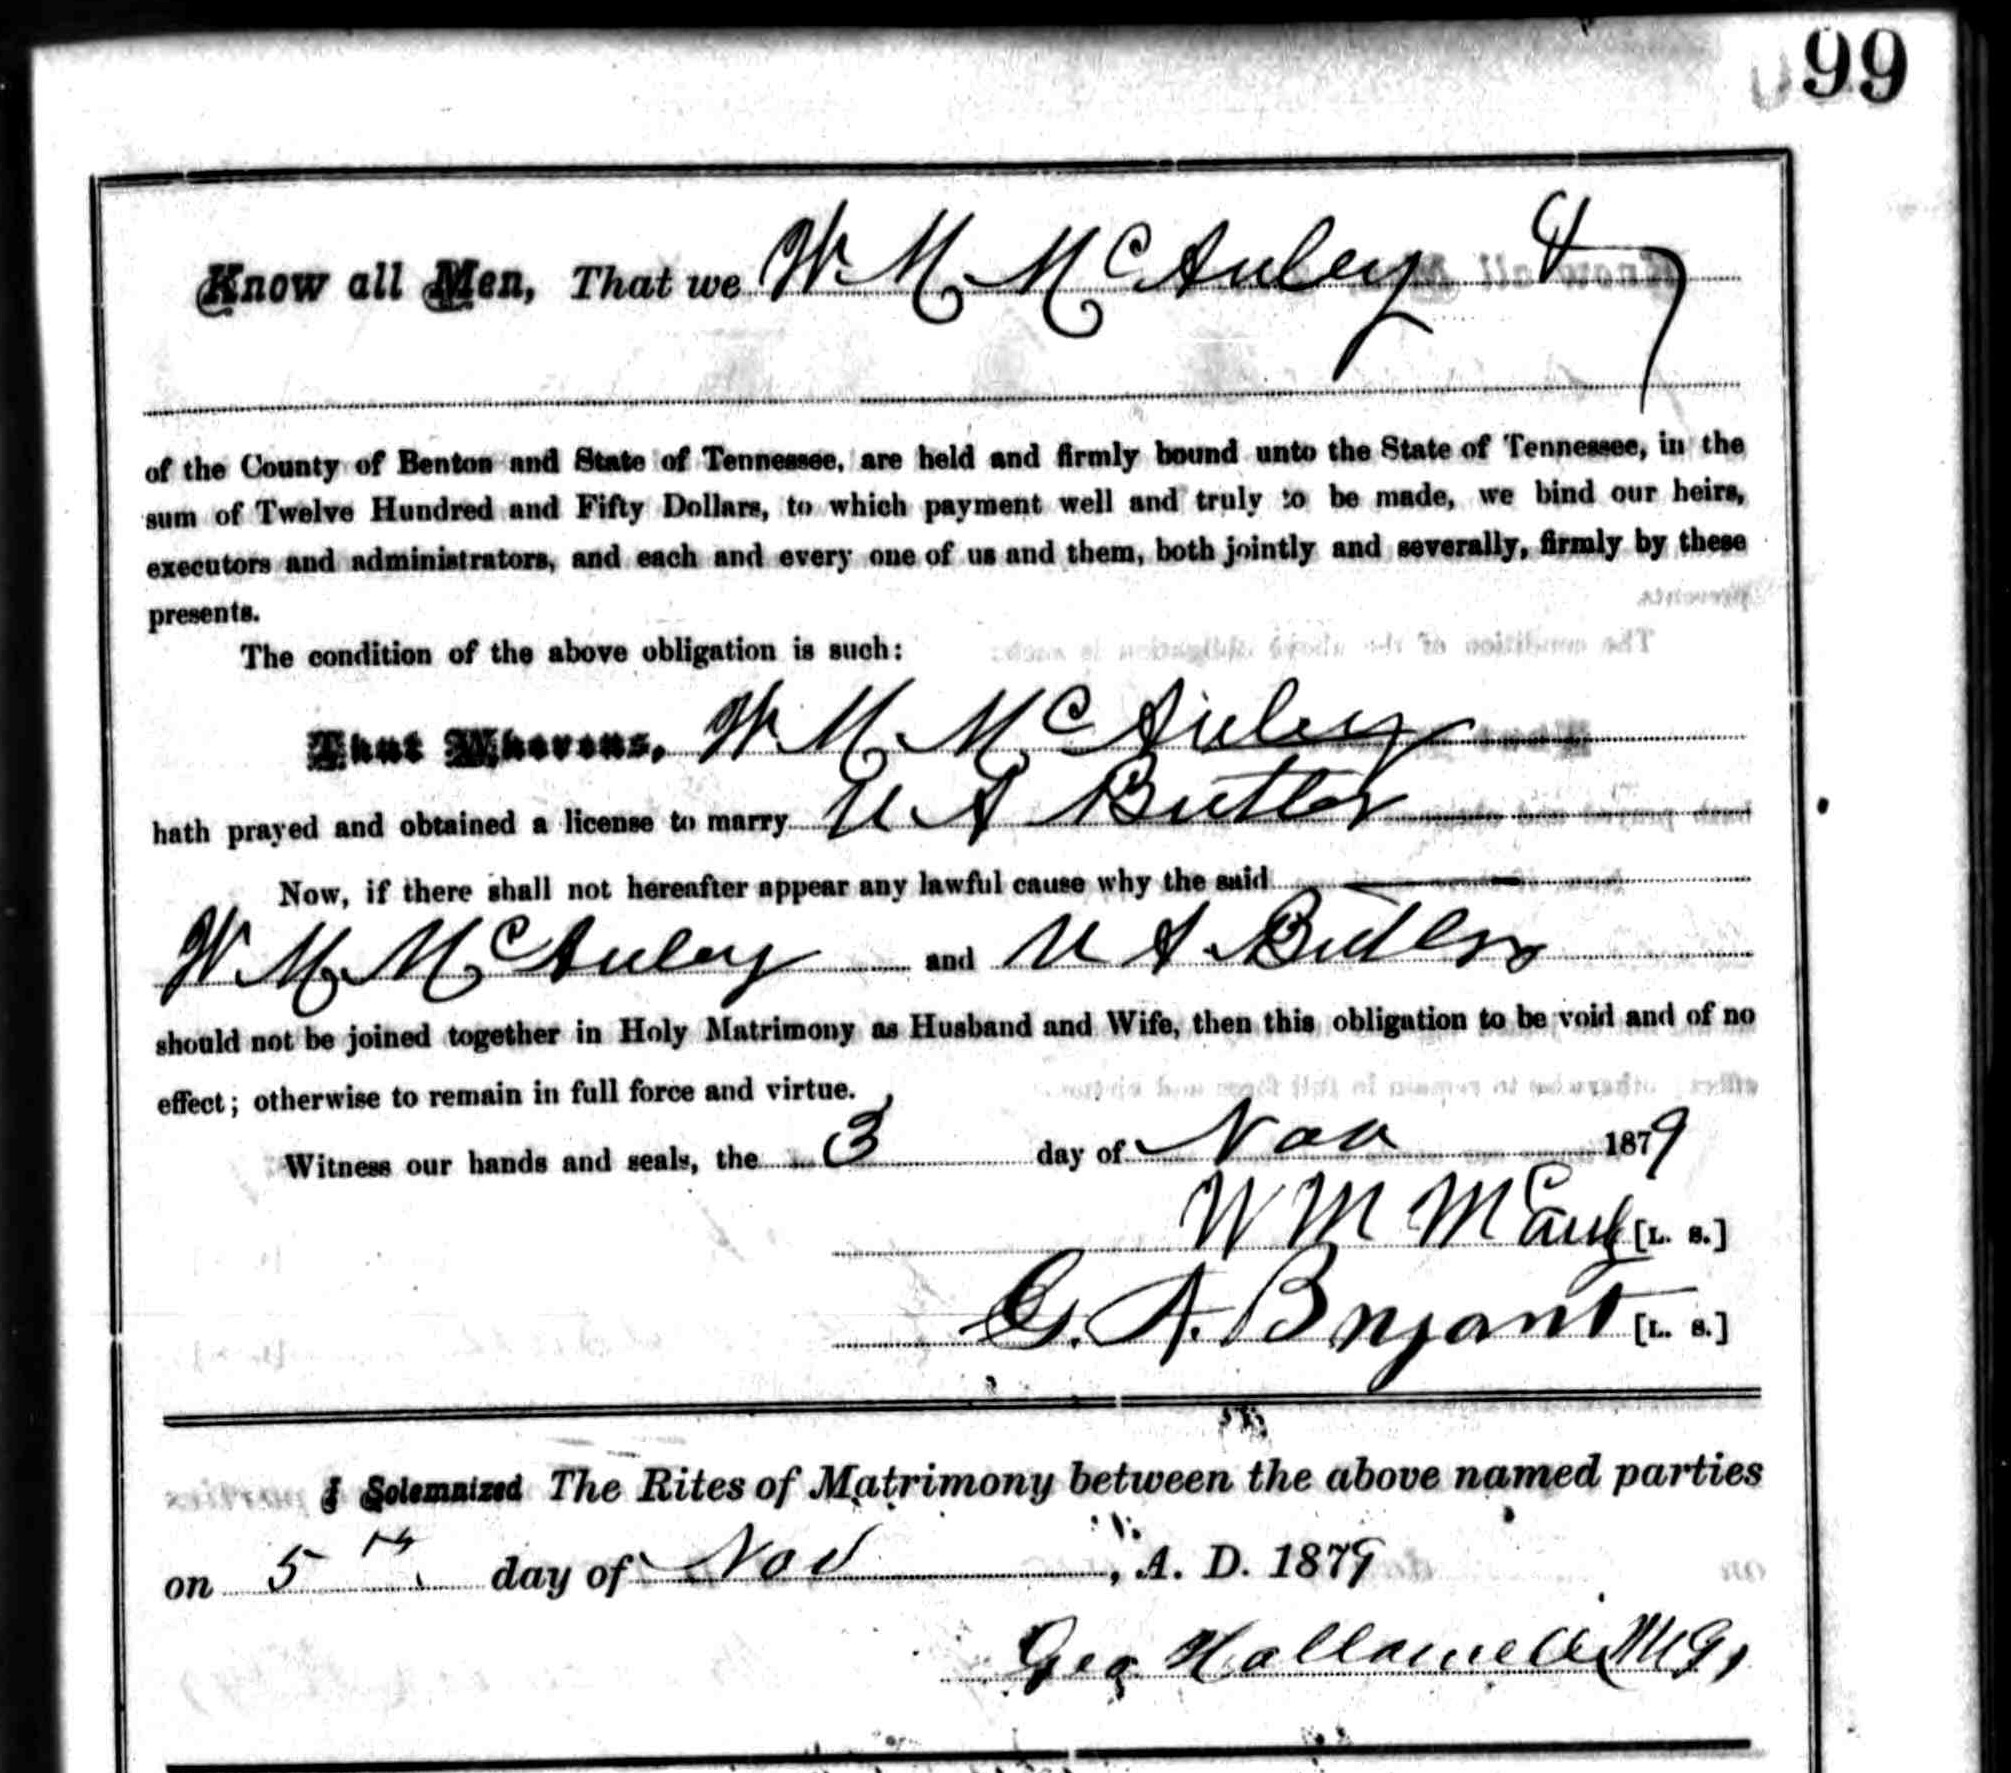 99
Know all Men, That we W. M. McAuley &
of the County of Benton and State of Tennessee, are held and firmly bound unto the State of Tennessee, in the
sum of Twelve Hundred and Fifty Dollars, to which payment well and truly to be made, we bind our heirs,
executors and administrators, and each and every one of us and them, both jointly and severally, firmly by these
presents.
The condition of the above obligation is such:
That Whereas, W. M. McAuley
hath prayed and obtained a license to marry U A Butler
Now, if there shall not hereafter appear any lawful cause why the said
W. M. McAuley and U A. Butler
should not be joined together in Holy Matrimony as Husband and Wife, then this obligation to be void and of no
effect; otherwise to remain in full force and virtue.
Witness our hands and seals, the 3 day of Nov 1879
W M McAuly [L. S.]
G. A. Bryant [L. S.]
I Solemnized The Rites of Matrimony between the above named parties
on 5th day of Nov, A. D. 1879
Geo Hallowell M G,